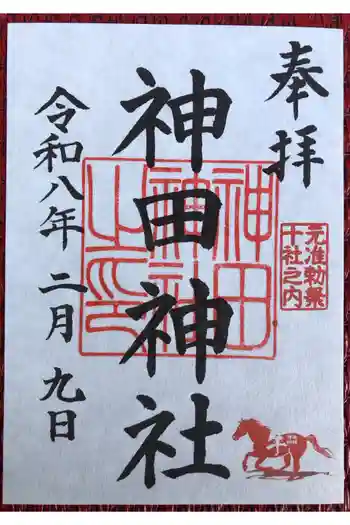 奉拝
元准勅祭
十社之内
神田神社
神田
神社
之印
令和八年二月九日